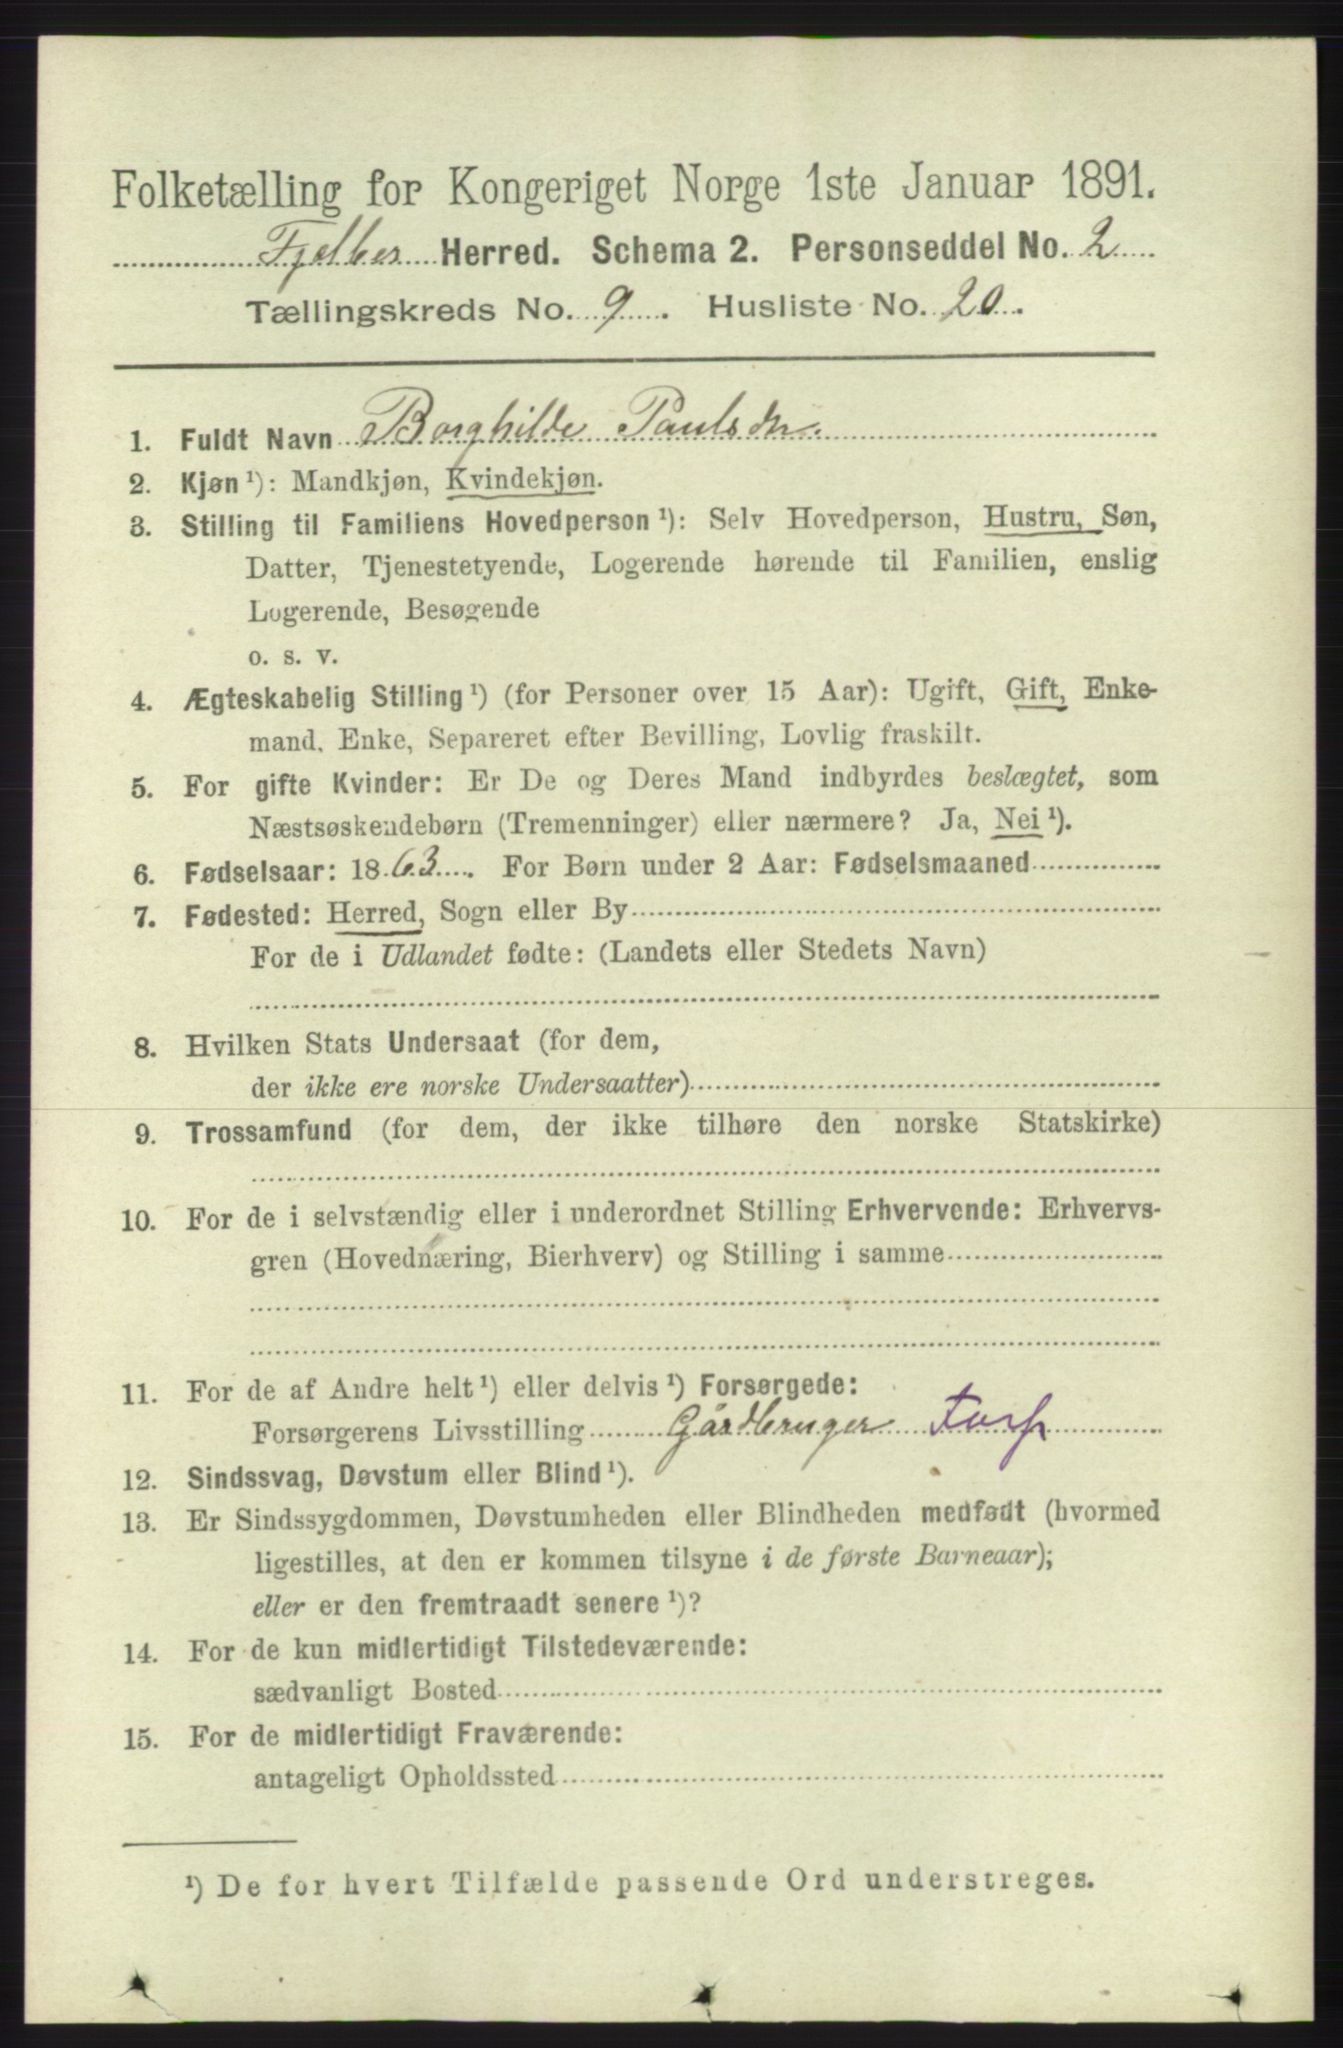 Folketælling for Kongeriget Norge 1ste Januar 1891.
Fjelber Herred. Schema 2. Personseddel No. 2
Tællingskreds No. 9. Husliste No. 20.
1. Fuldt Navn Borghilde Paulsdtr.
2. Kjøn¹): Mandkjøn, Kvindekjøn.
3. Stilling til Familiens Hovedperson¹): Selv Hovedperson, Hustru, Søn,
Datter, Tjenestetyende, Logerende hørende til Familien, enslig
Logerende, Besøgende
o. s. v.
4. Ægteskabelig Stilling¹) (for Personer over 15 Aar): Ugift, Gift, Enke-
mand, Enke, Separeret efter Bevilling, Lovlig fraskilt.
5. For gifte Kvinder: Er De og Deres Mand indbyrdes beslægtet, som
Næstsøskendebørn (Tremenninger) eller nærmere? Ja, Nei¹).
6. Fødselsaar: 1863. For Børn under 2 Aar: Fødselsmaaned
7. Fødested: Herred, Sogn eller By
For de i Udlandet fødte: (Landets eller Stedets Navn)
8. Hvilken Stats Undersaat (for dem,
der ikke ere norske Undersaatter)
9. Trossamfund (for dem, der ikke tilhøre den norske Statskirke)
10. For de i selvstændig eller i underordnet Stilling Erhvervende: Erhvervs-
gren (Hovednæring, Bierhverv) og Stilling i samme
11. For de af Andre helt¹) eller delvis¹) Forsørgede:
Forsørgerens Livsstilling Gårdbruger
12. Sindssvag, Døvstum eller Blind¹).
13. Er Sindssygdommen, Døvstumheden eller Blindheden medfødt (hvormed
ligestilles, at den er kommen tilsyne i de første Barneaar);
eller er den fremtraadt senere¹)?
14. For de kun midlertidigt Tilstedeværende:
sædvanligt Bosted
15. For de midlertidigt Fraværende:
antageligt Opholdssted
¹) De for hvert Tilfælde passende Ord understreges.